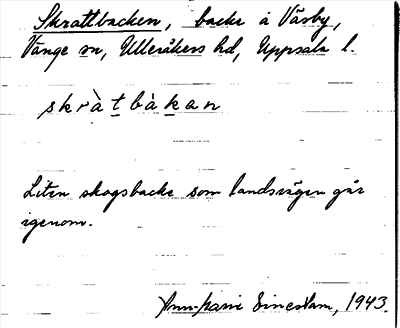 Skrattbacken, backe å Väsby,
Vänge sn, Ulleråkers hd, Uppsala l.
skràtbàkan
Liten skogsbacke som landsvägen går
igenom.
Ann-Marie 1943.